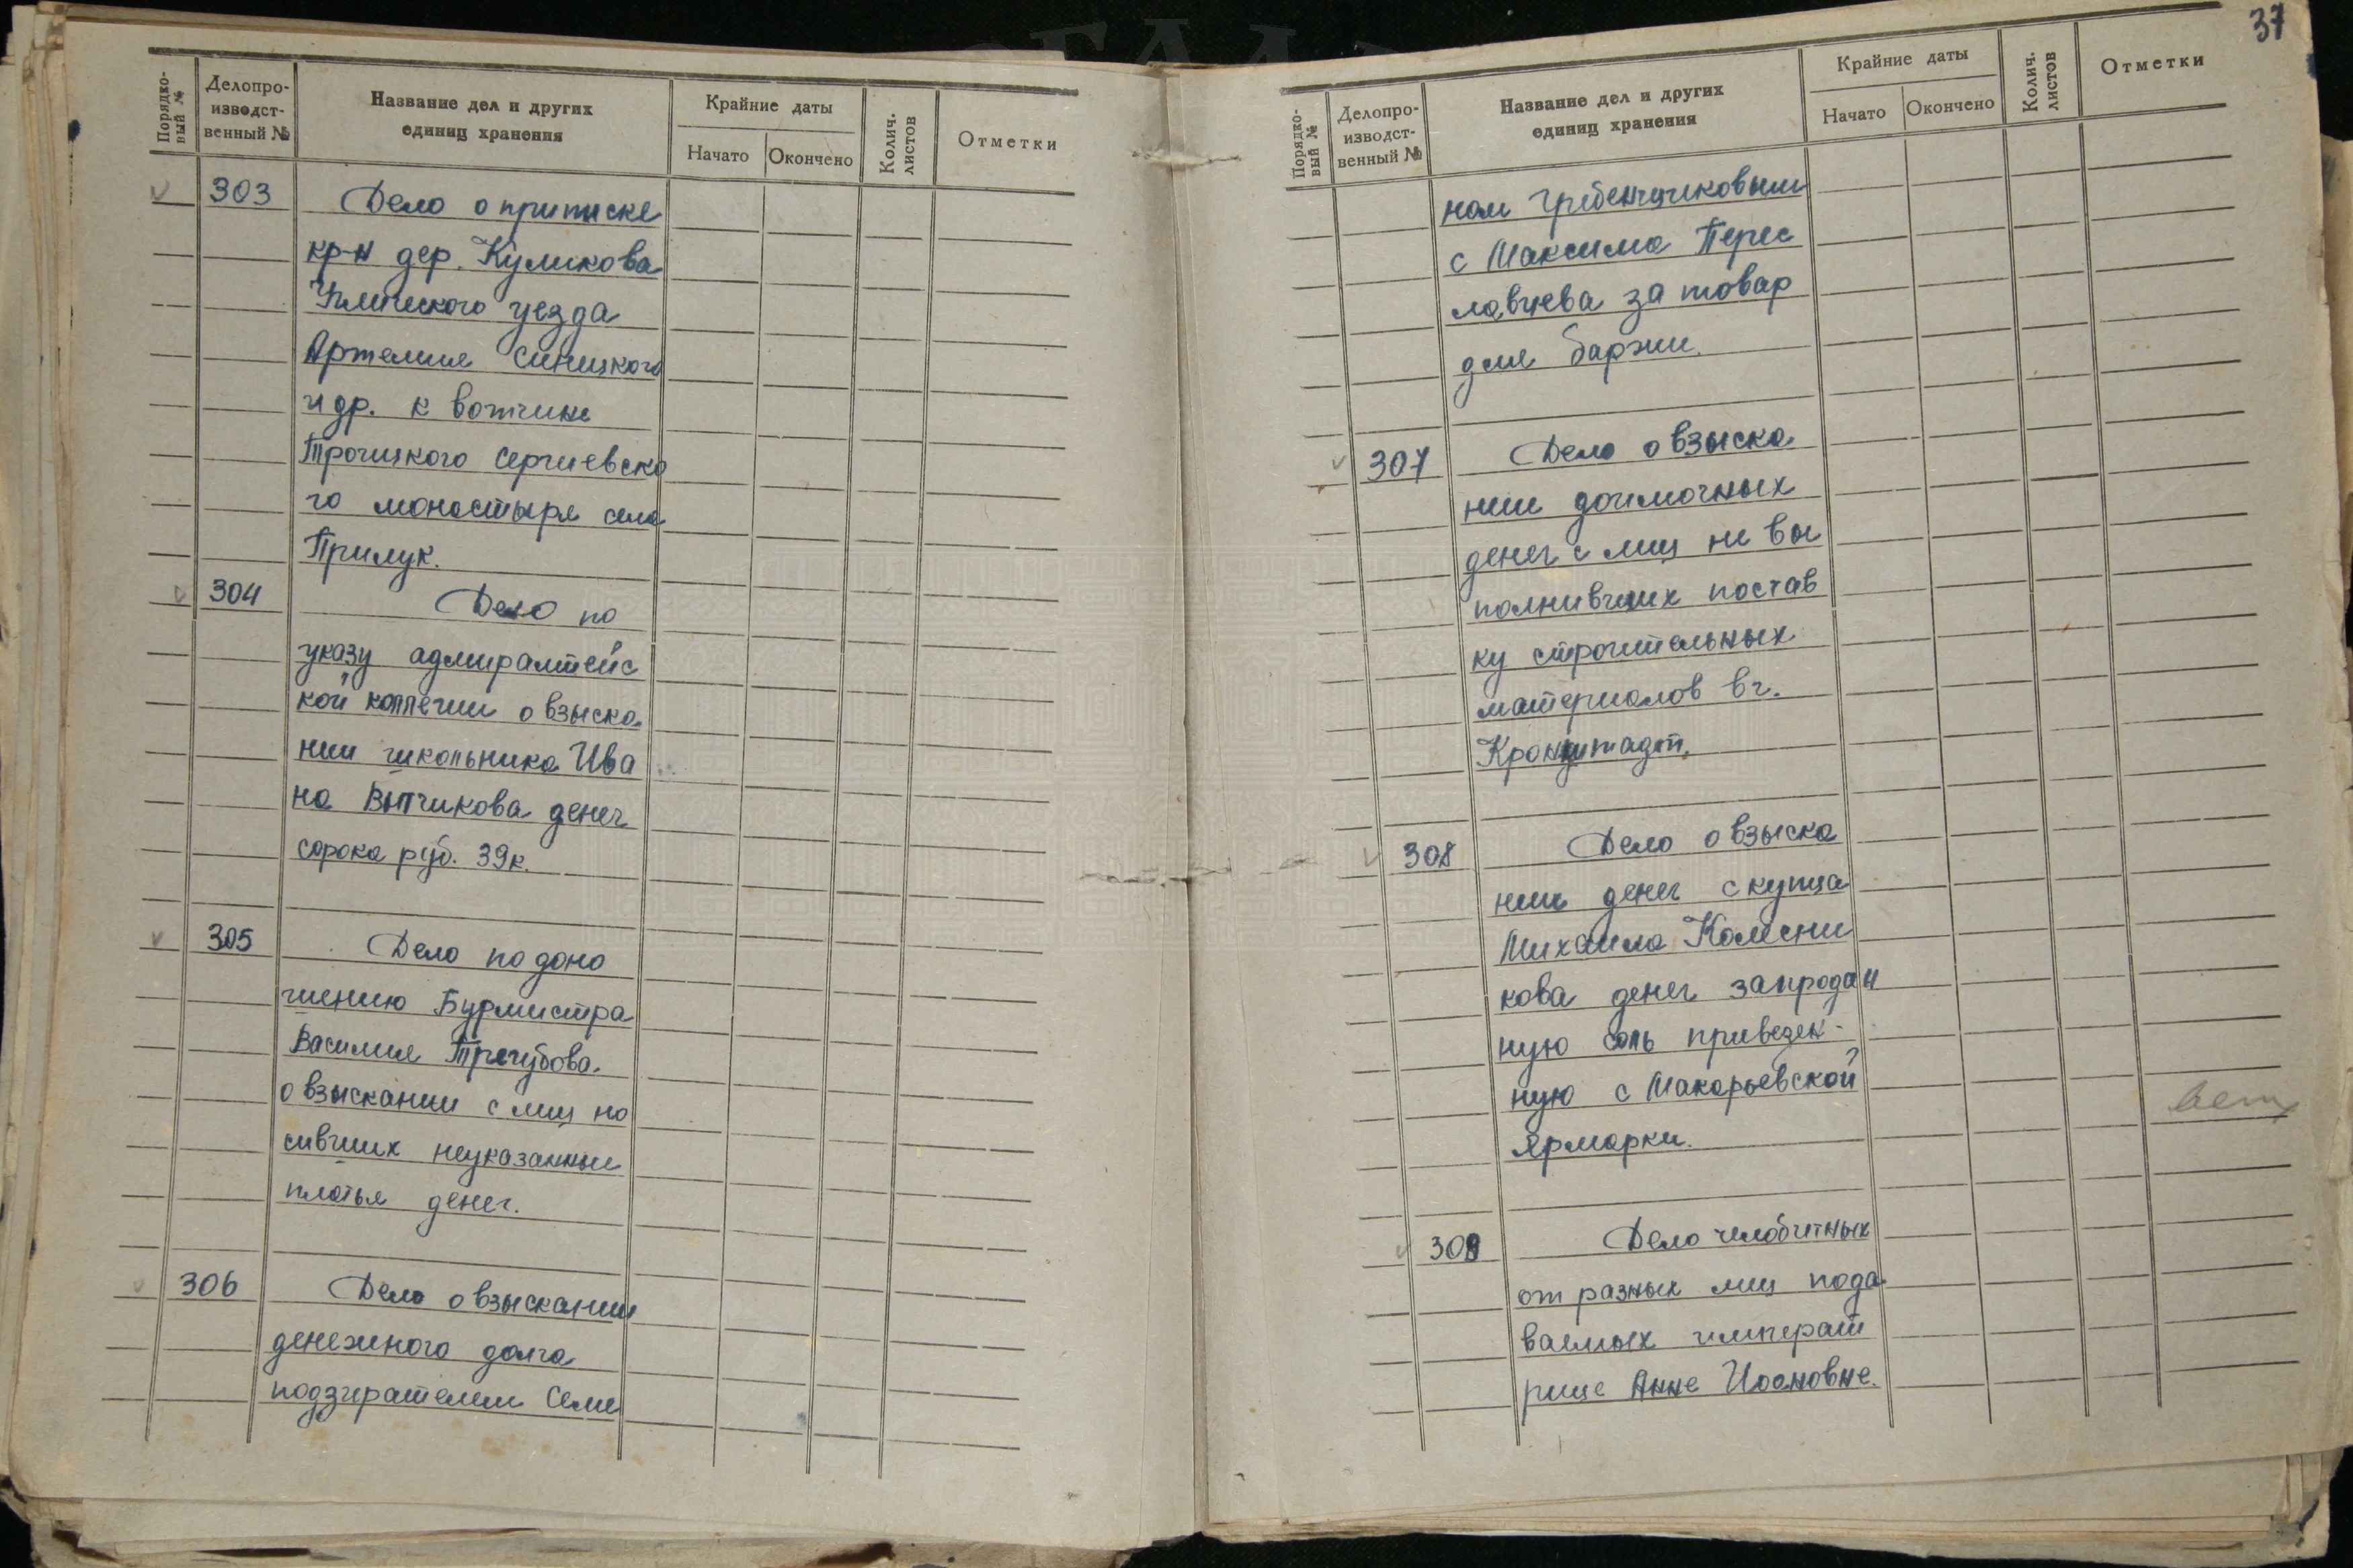 37
Порядко-
вый №
Делопро-
изводст-
венный №
Название дел и других
единиц хранения
Крайние даты
Начато
Окончено
Колич.
листов
Отметки
303 Дело о приписке
кр-н дер. Куликова
Угличского уезда
Артемия Синицкого
и др. к вотчине
Троицкого Сергиевско
го монастыря села
Прилук.
304 Дело по
указу адмиралтейс
кой коллегии о взыска
нии школьника Ива
на денег
сорока руб. 39к.
305 Дело по доно
шению Бурмистра
Василия
о взыскании с лиц но
сивших неуказанные
платья денег.
306 Дело о взыскании
денежного долга
подзирателем Семе
Порядко-
вый №
Делопро-
изводст-
венный №
Название дел и других
единиц хранения
Крайние даты
Начато
Окончено
Колич.
листов
Отметки
ном Гребенщиковым
с Максима Перес
лавцева за товар
для баржи.
307 Дело о взыска
нии доимочных
денег с лиц не вы
полнивших постав
ку строительных
материалов в г.
Кронштадт.
308 Дело о взыска
нии денег с купца
Михаила Колесни
кова денег за продан
ную соль привезен-
ную с Макарьевской
Ярмарки.
309 Дело челобитных
от разных лиц пода
ваемых императ
рице Анне Иоановне.